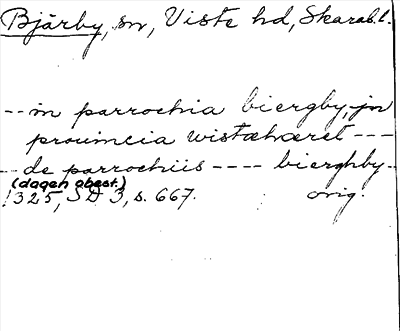 Bjärby, sn, Viste hd, Skarab.l.
-- in parrochia biergby, in
prouincia wistæhæret ---
-- de parrochiis ---- bierghby--
(dagen obest.)
1325, SD 3, s. 667. orig.